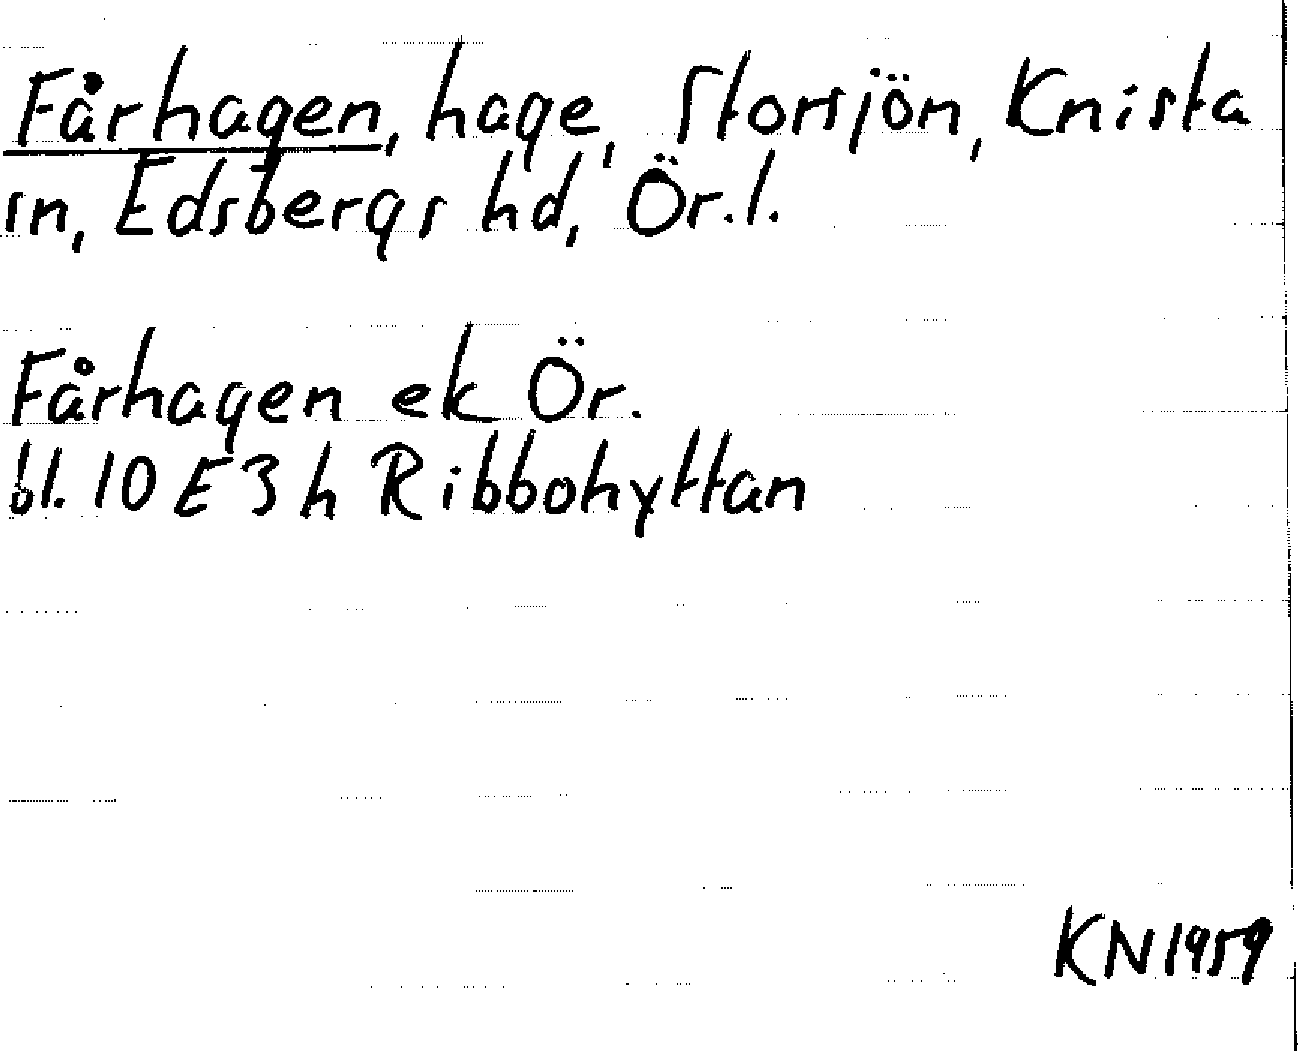 Fårhagen, hage, Storsjön, Knista
sn, Edsbergs hd, Ör.l.
Fårhagen ek Ör.
bl. 10 E 3 h Ribbohyttan
KN 1959